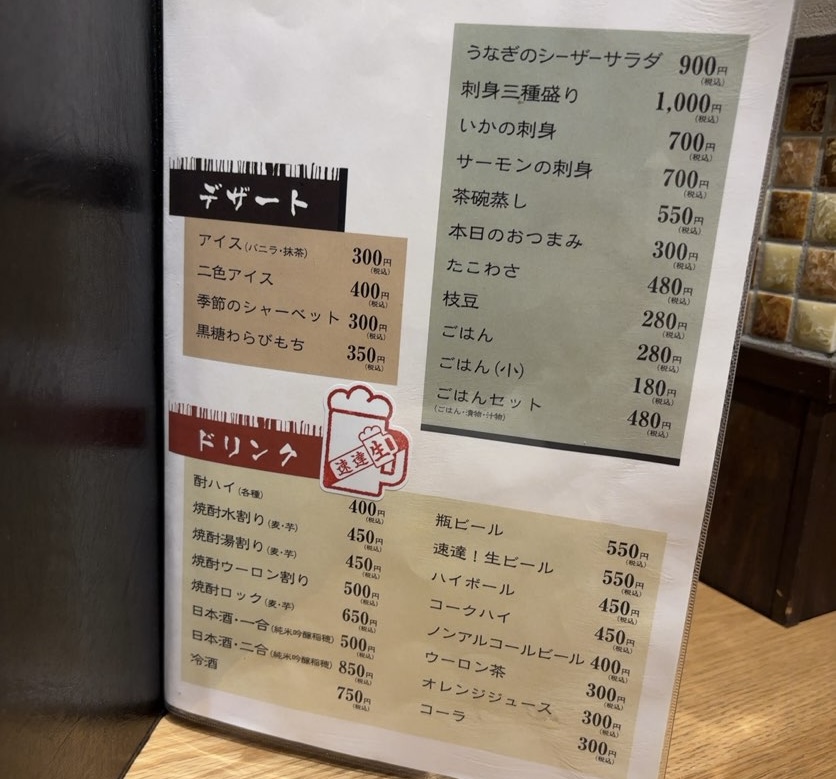 うなぎのシーザーサラダ 900円(税込)
刺身三種盛り 1,000円(税込)
いかの刺身 700円(税込)
サーモンの刺身 700円(税込)
茶碗蒸し 550円(税込)
本日のおつまみ 300円(税込)
たこわさ 480円(税込)
枝豆 280円(税込)
ごはん 280円(税込)
ごはん(小) 180円(税込)
ごはんセット 480円(税込)
(ごはん・漬物・汁物)
デザート
アイス(バニラ・抹茶) 300円(税込)
二色アイス 400円(税込)
季節のシャーベット 300円(税込)
黒糖わらびもち 350円(税込)
ドリンク
速達生
酎ハイ(各種) 400円(税込)
焼酎水割り(麦・芋) 450円(税込)
焼酎湯割り(麦・芋) 450円(税込)
焼酎ウーロン割り 500円(税込)
焼酎ロック(麦・芋) 650円(税込)
日本酒・一合(純米吟醸稲穂) 500円(税込)
日本酒・二合(純米吟醸稲穂) 850円(税込)
冷酒 750円(税込)
瓶ビール 550円(税込)
速達!生ビール 550円(税込)
ハイボール 450円(税込)
コークハイ 450円(税込)
ノンアルコールビール 400円(税込)
ウーロン茶 300円(税込)
オレンジジュース 300円(税込)
コーラ 300円(税込)